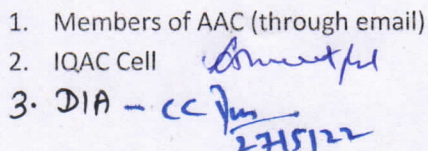 1. Members of AAC (through email)
2. IQAC Cell
3. DIA - CC
27/5/22